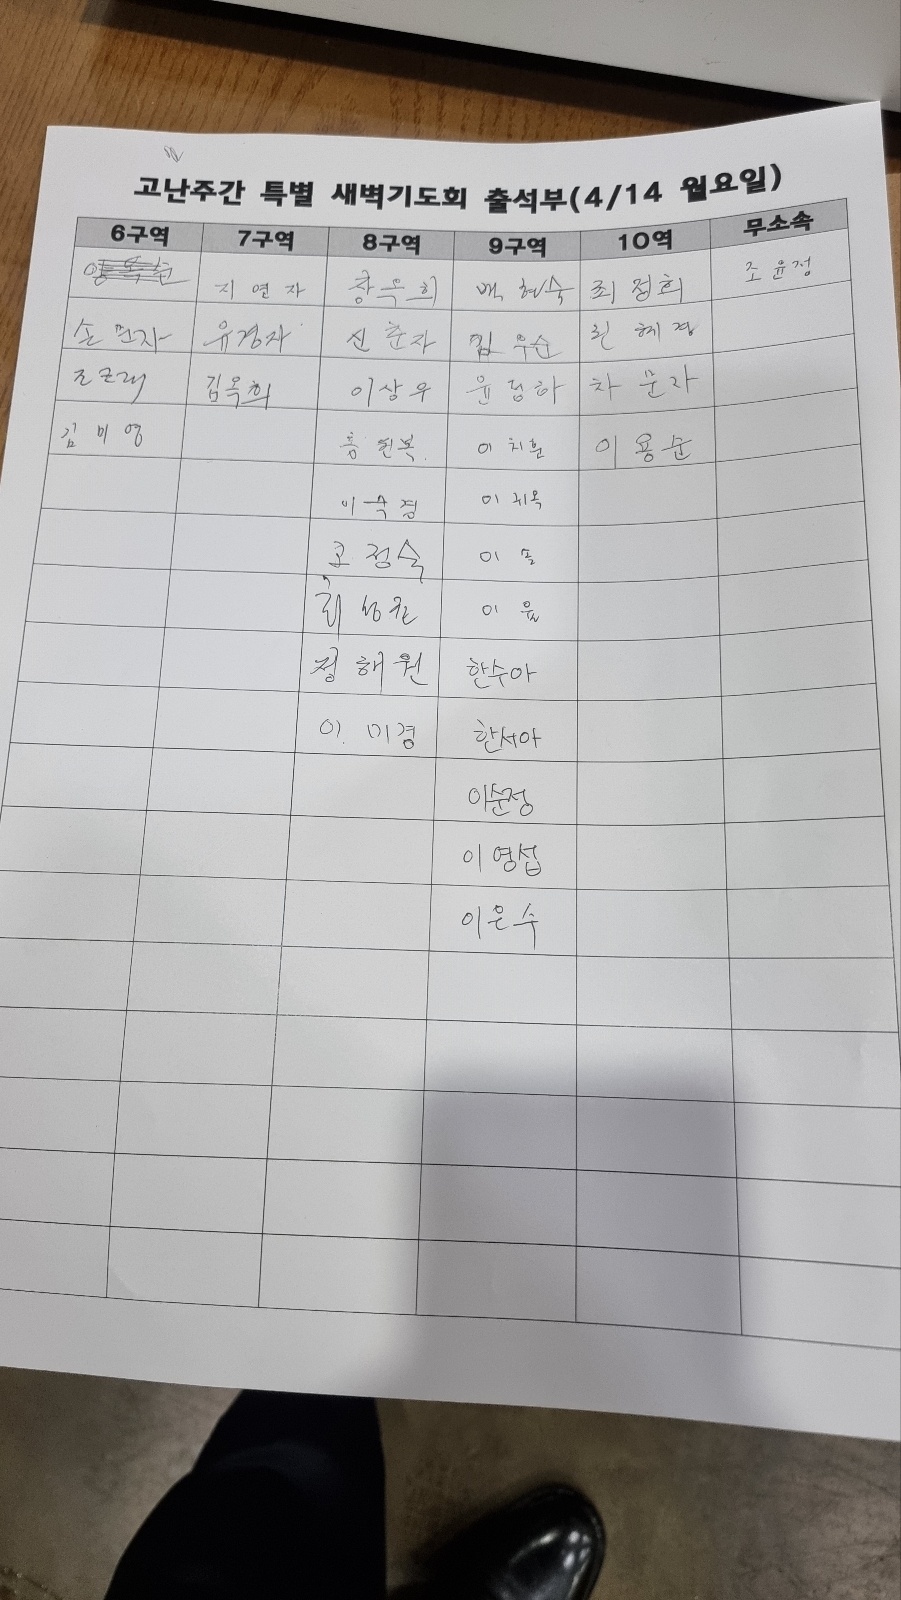 고난주간 특별 새벽기도회 출석부(4/14 월요일)
6구역 7구역 8구역 9구역 10역 무소속
지연자 황옥희 백현숙 최정희 조윤정
손민자 유경자 신춘자 김우순
조근래 김옥희 이상우 윤정하 차문자
김미영 홍원복 이치훈 이용순
이숙경 이귀옥
고정숙 이솔
최성원 이윤
정해원 한수아
이미경 한서아
이순정
이영섭
이은수